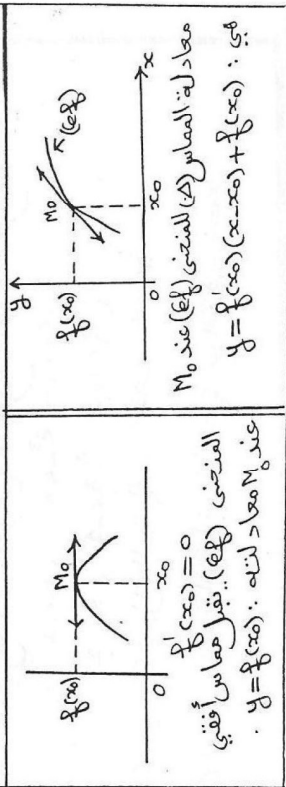 y
f(x₀)
M₀
(𝒞f)
0
x₀
x
معادلة المماس (Δ) للمنحنى (𝒞f) عند M₀
هي: y = f'(x₀)(x-x₀) + f(x₀)
f(x₀)
M₀
0
x₀
f'(x₀) = 0
المنحنى (𝒞f) يقبل مماس أفقي
عند M₀ معادلته: y = f(x₀).